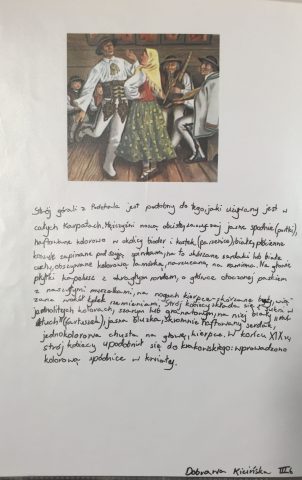 Strój górali z Podhala jest podobny do tego, jaki ubierany jest w
całych Karpatach. Mężczyźni noszą obcisłe jasne spodnie (portki),
haftowane kolorowo w okolicy bioder i kostek (parzenica), białe, płócienne
koszule zapinane pod szyję spinkami, na to skórzane serdaki lub białe
cuchy, obszywane kolorową lamówką, narzucane na ramiona. Na głowie
płytki kapelusz z okrągłym rondem, o główce otoczonej paskiem
z naszytymi muszelkami, na nogach kierpce - skórzane buty, wią-
zane wokół łydek rzemieniami. Strój kobiecy składa się z
jednolitych kolorach, szarym lub granatowym, na niej biały
fartuch (fartuszek), jasna bluzka, skromnie haftowany serdak,
jednokolorowa chusta na głowę, kierpce. W końcu XIX w.
strój kobiecy upodobnił się do krakowskiego: wprowadzono
kolorowe spódnice w kwiaty.
Dobrawa Kicińska III b